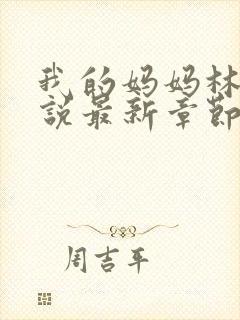 我的妈妈林
說最新章節
周吉平